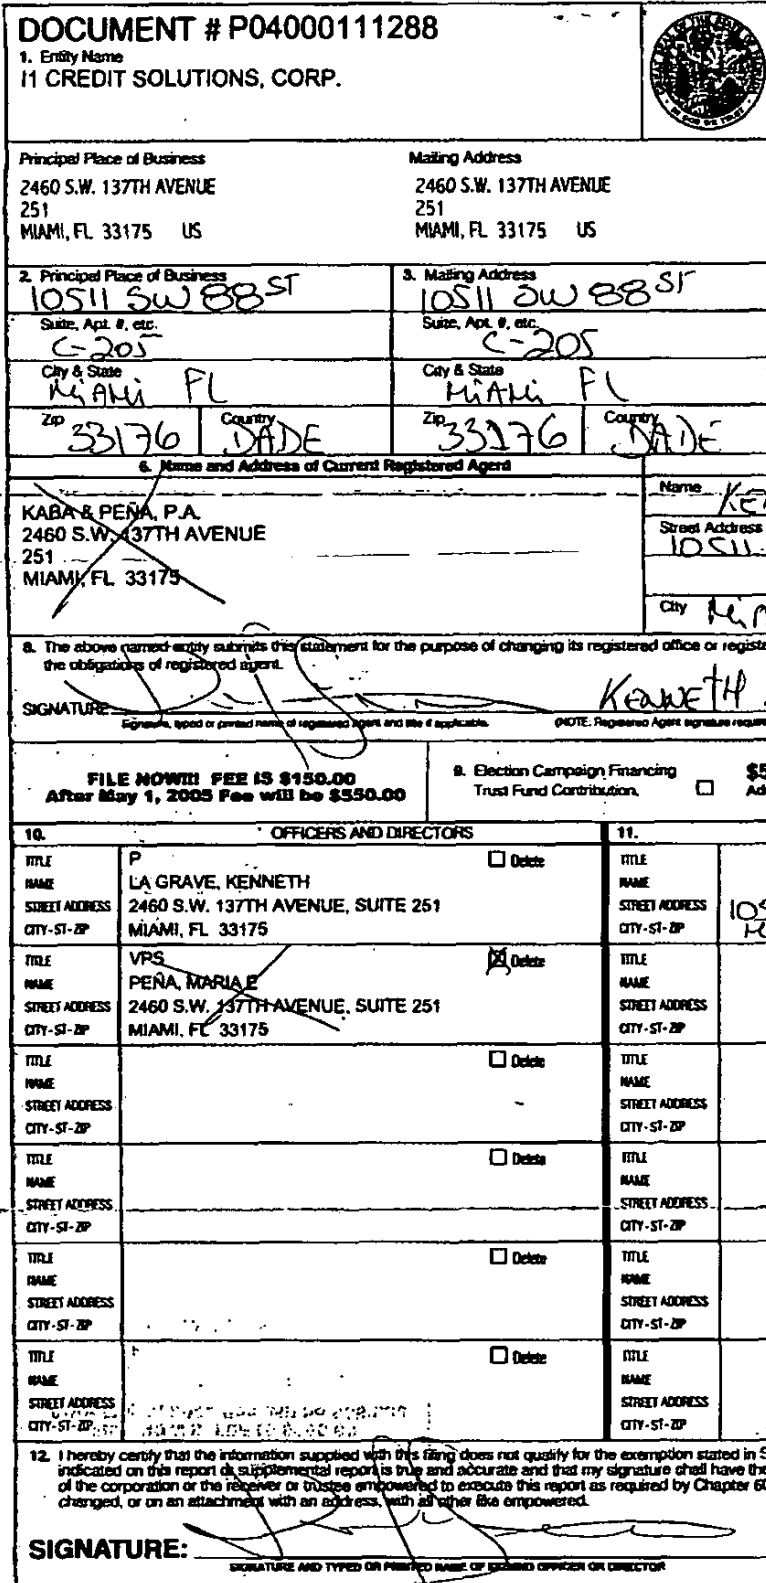 DOCUMENT # P04000111288
1. Entity Name
I1 CREDIT SOLUTIONS, CORP.
Principal Place of Business
2460 S.W. 137TH AVENUE
251
MIAMI, FL 33175 US
Mailing Address
2460 S.W. 137TH AVENUE
251
MIAMI, FL 33175 US
2. Principal Place of Business
10511 SW 88 ST
3. Mailing Address
10511 SW 88 ST
Suite, Apt. #, etc.
C-205
Suite, Apt. #, etc.
C-205
City & State
MiAMi FL
City & State
MiAMi FL
Zip
33176
Country
DADE
Zip
33176
Country
DADE
6. Name and Address of Current Registered Agent
KABA & PEÑA, P.A.
2460 S.W. 137TH AVENUE
251
MIAMI, FL 33175
Name
Street Address
10511
City
8. The above named entity submits this statement for the purpose of changing its registered office or registe
the obligations of registered agent.
SIGNATURE
KENNETH
Signature, typed or printed name of registered agent and title if applicable.
(NOTE: Registered Agent signature require
FILE NOW!!! FEE IS $150.00
After May 1, 2005 Fee will be $550.00
9. Election Campaign Financing
Trust Fund Contribution.
$5
Ad
10. OFFICERS AND DIRECTORS
11.
TITLE P Delete
NAME LA GRAVE, KENNETH
STREET ADDRESS 2460 S.W. 137TH AVENUE, SUITE 251
CITY-ST-ZIP MIAMI, FL 33175
TITLE
NAME
STREET ADDRESS
CITY-ST-ZIP
TITLE VPS Delete
NAME PEÑA, MARIA E
STREET ADDRESS 2460 S.W. 137TH AVENUE, SUITE 251
CITY-ST-ZIP MIAMI, FL 33175
TITLE
NAME
STREET ADDRESS
CITY-ST-ZIP
TITLE Delete
NAME
STREET ADDRESS
CITY-ST-ZIP
TITLE
NAME
STREET ADDRESS
CITY-ST-ZIP
TITLE Delete
NAME
STREET ADDRESS
CITY-ST-ZIP
TITLE
NAME
STREET ADDRESS
CITY-ST-ZIP
TITLE Delete
NAME
STREET ADDRESS
CITY-ST-ZIP
TITLE
NAME
STREET ADDRESS
CITY-ST-ZIP
TITLE Delete
NAME
STREET ADDRESS
CITY-ST-ZIP
TITLE
NAME
STREET ADDRESS
CITY-ST-ZIP
12. I hereby certify that the information supplied with this filing does not qualify for the exemption stated in S
indicated on this report or supplemental report is true and accurate and that my signature shall have the
of the corporation or the receiver or trustee empowered to execute this report as required by Chapter 60
changed, or on an attachment with an address, with all other like empowered.
SIGNATURE:
SIGNATURE AND TYPED OR PRINTED NAME OF SIGNING OFFICER OR DIRECTOR